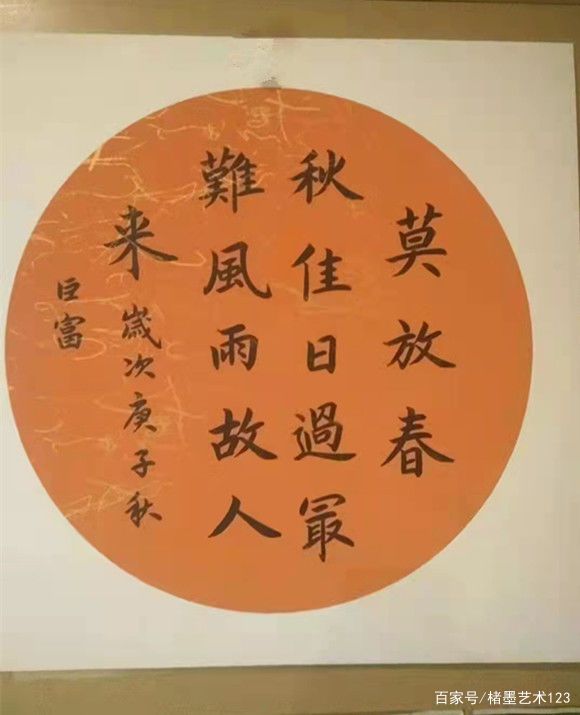 莫放春
秋佳日過冣
難風雨故人
来
歲次庚子秋
巨富
百家号/楮墨艺术123